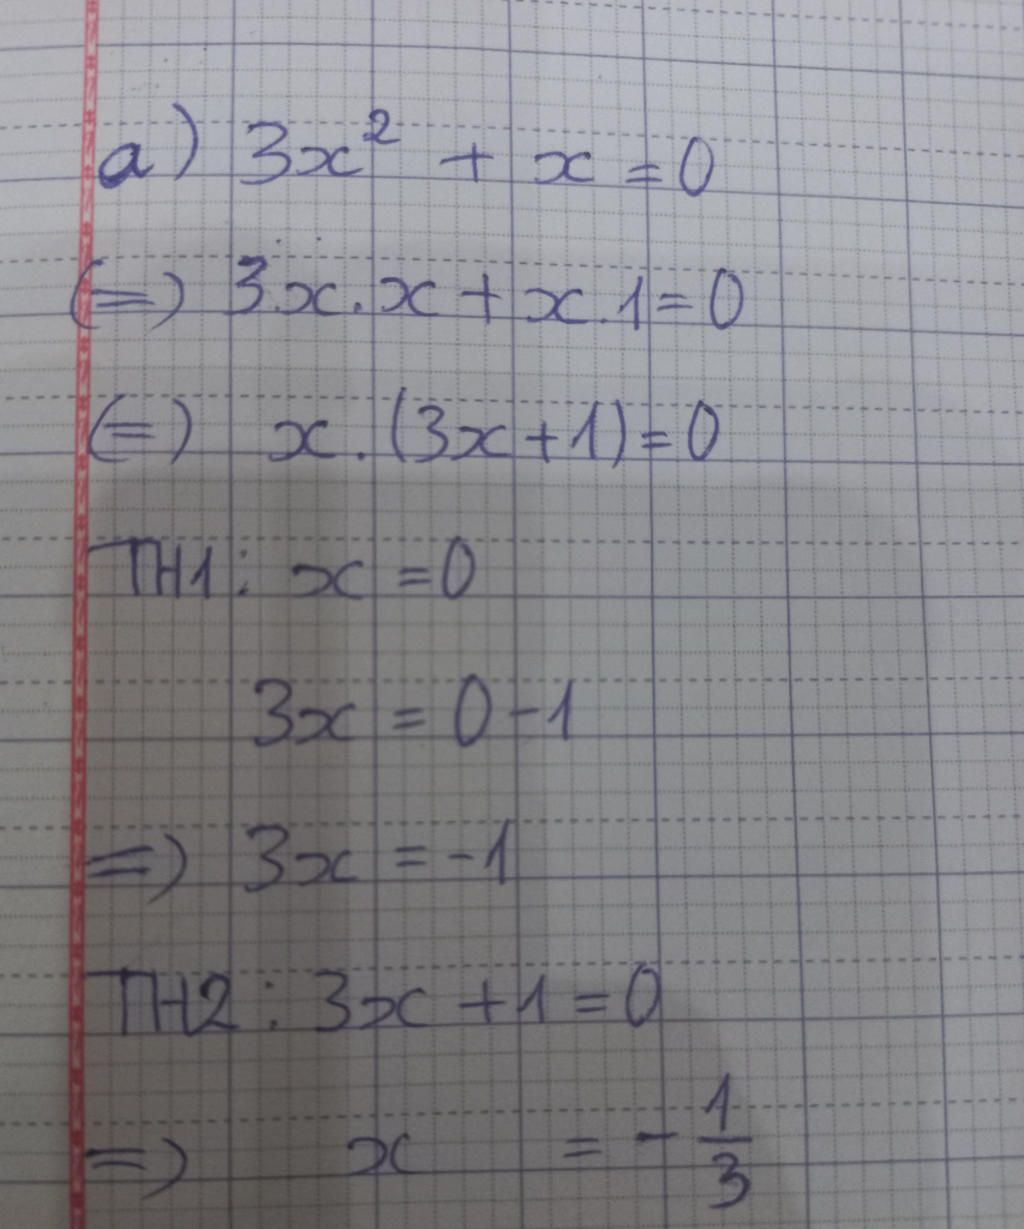 a) 3x² + x = 0
(=) 3.x.x + x.1 = 0
(=) x.(3x+1) = 0
TH1: x = 0
3x = 0 - 1
=) 3x = -1
TH2: 3x + 1 = 0
=) x = - 1/3